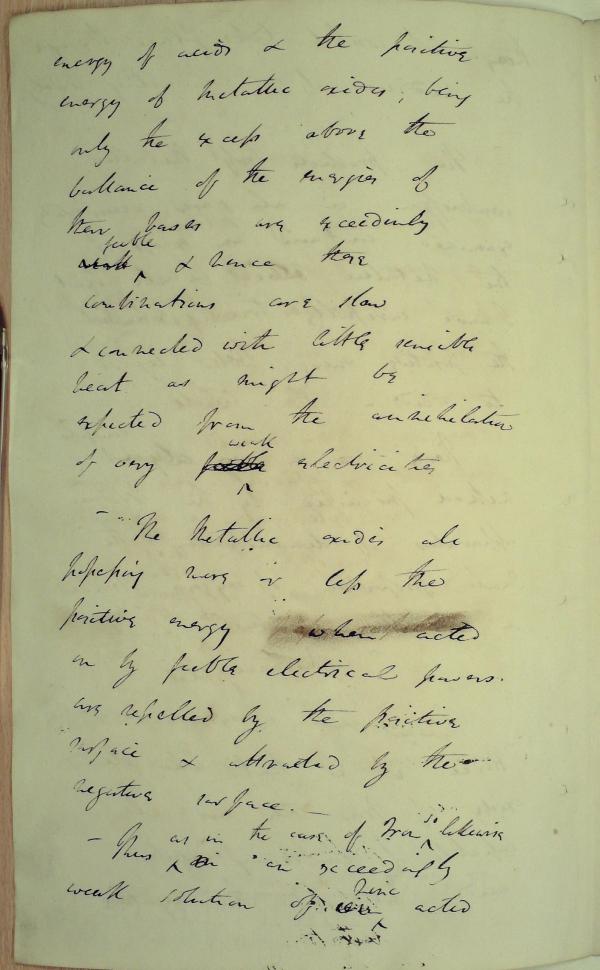 energy of acids & the positive
energy of metallic oxides, being
only the excess above the
ballance of the energies of
their bases are exceedinly
feeble
weak & hence there
combinations are slow
& connected with little sensible
heat as might be
expected from the annihilation
weak
of very feeble electricities
– The Metallic oxides all
possessing more or less the
positive energy when acted
on by feeble electrical powers.
are repelled by the positive
surface & attracted by the
negative surface. –
as in the case of Iron so likewise
– Thus in an exceedingly
zinc
weak solution of acted